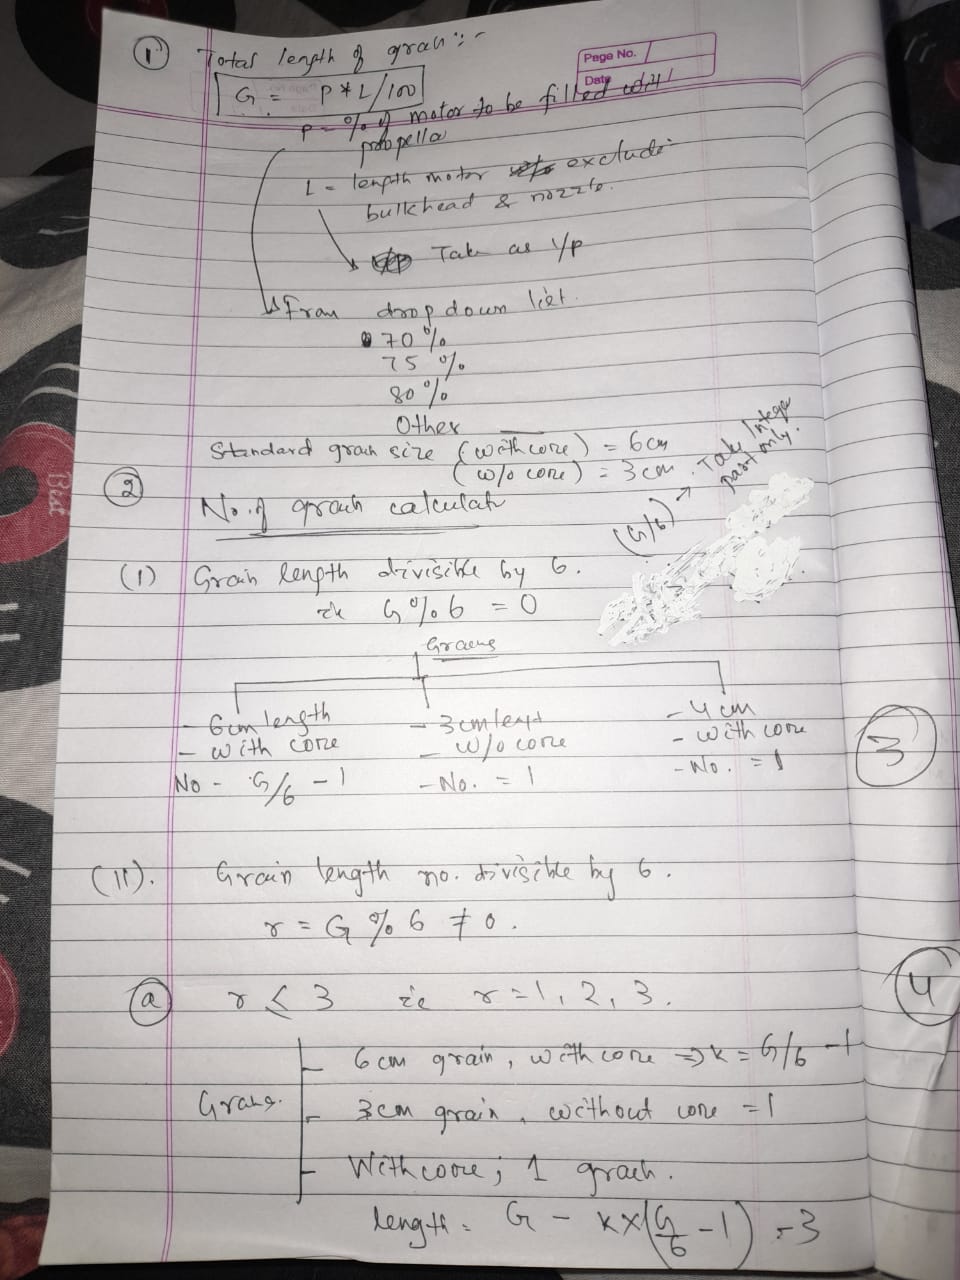 ① Total length of grain :-
Page No.
Date
G = P * L/100
P = % of motor to be filled with
propella
L = length motor exclude
bulkhead & nozzle.
Take as i/p
From drop down list.
70%
75 %
80 %
Other
Standard grain size (with core) = 6cm
(w/o core) = 3 cm
(G/6) → Take Integer
part only.
② No. of grain calculat
(I) Grain length divisible by 6.
ie G % 6 = 0
Grains
- 6cm length
- with core
No - G/6 - 1
- 3cm lengt
- w/o core
- No. = 1
- 4 cm
- with core
- No. = 1
3
(II). Grain length no. divisible by 6.
r = G % 6 ≠ 0.
4
ⓐ r ≤ 3 ie r = 1, 2, 3.
Grains.
6 cm grain, with core => K = G/6 - 1
3cm grain, without core = 1
With core; 1 grain.
length = G - K x (G/6 - 1) - 3
Best